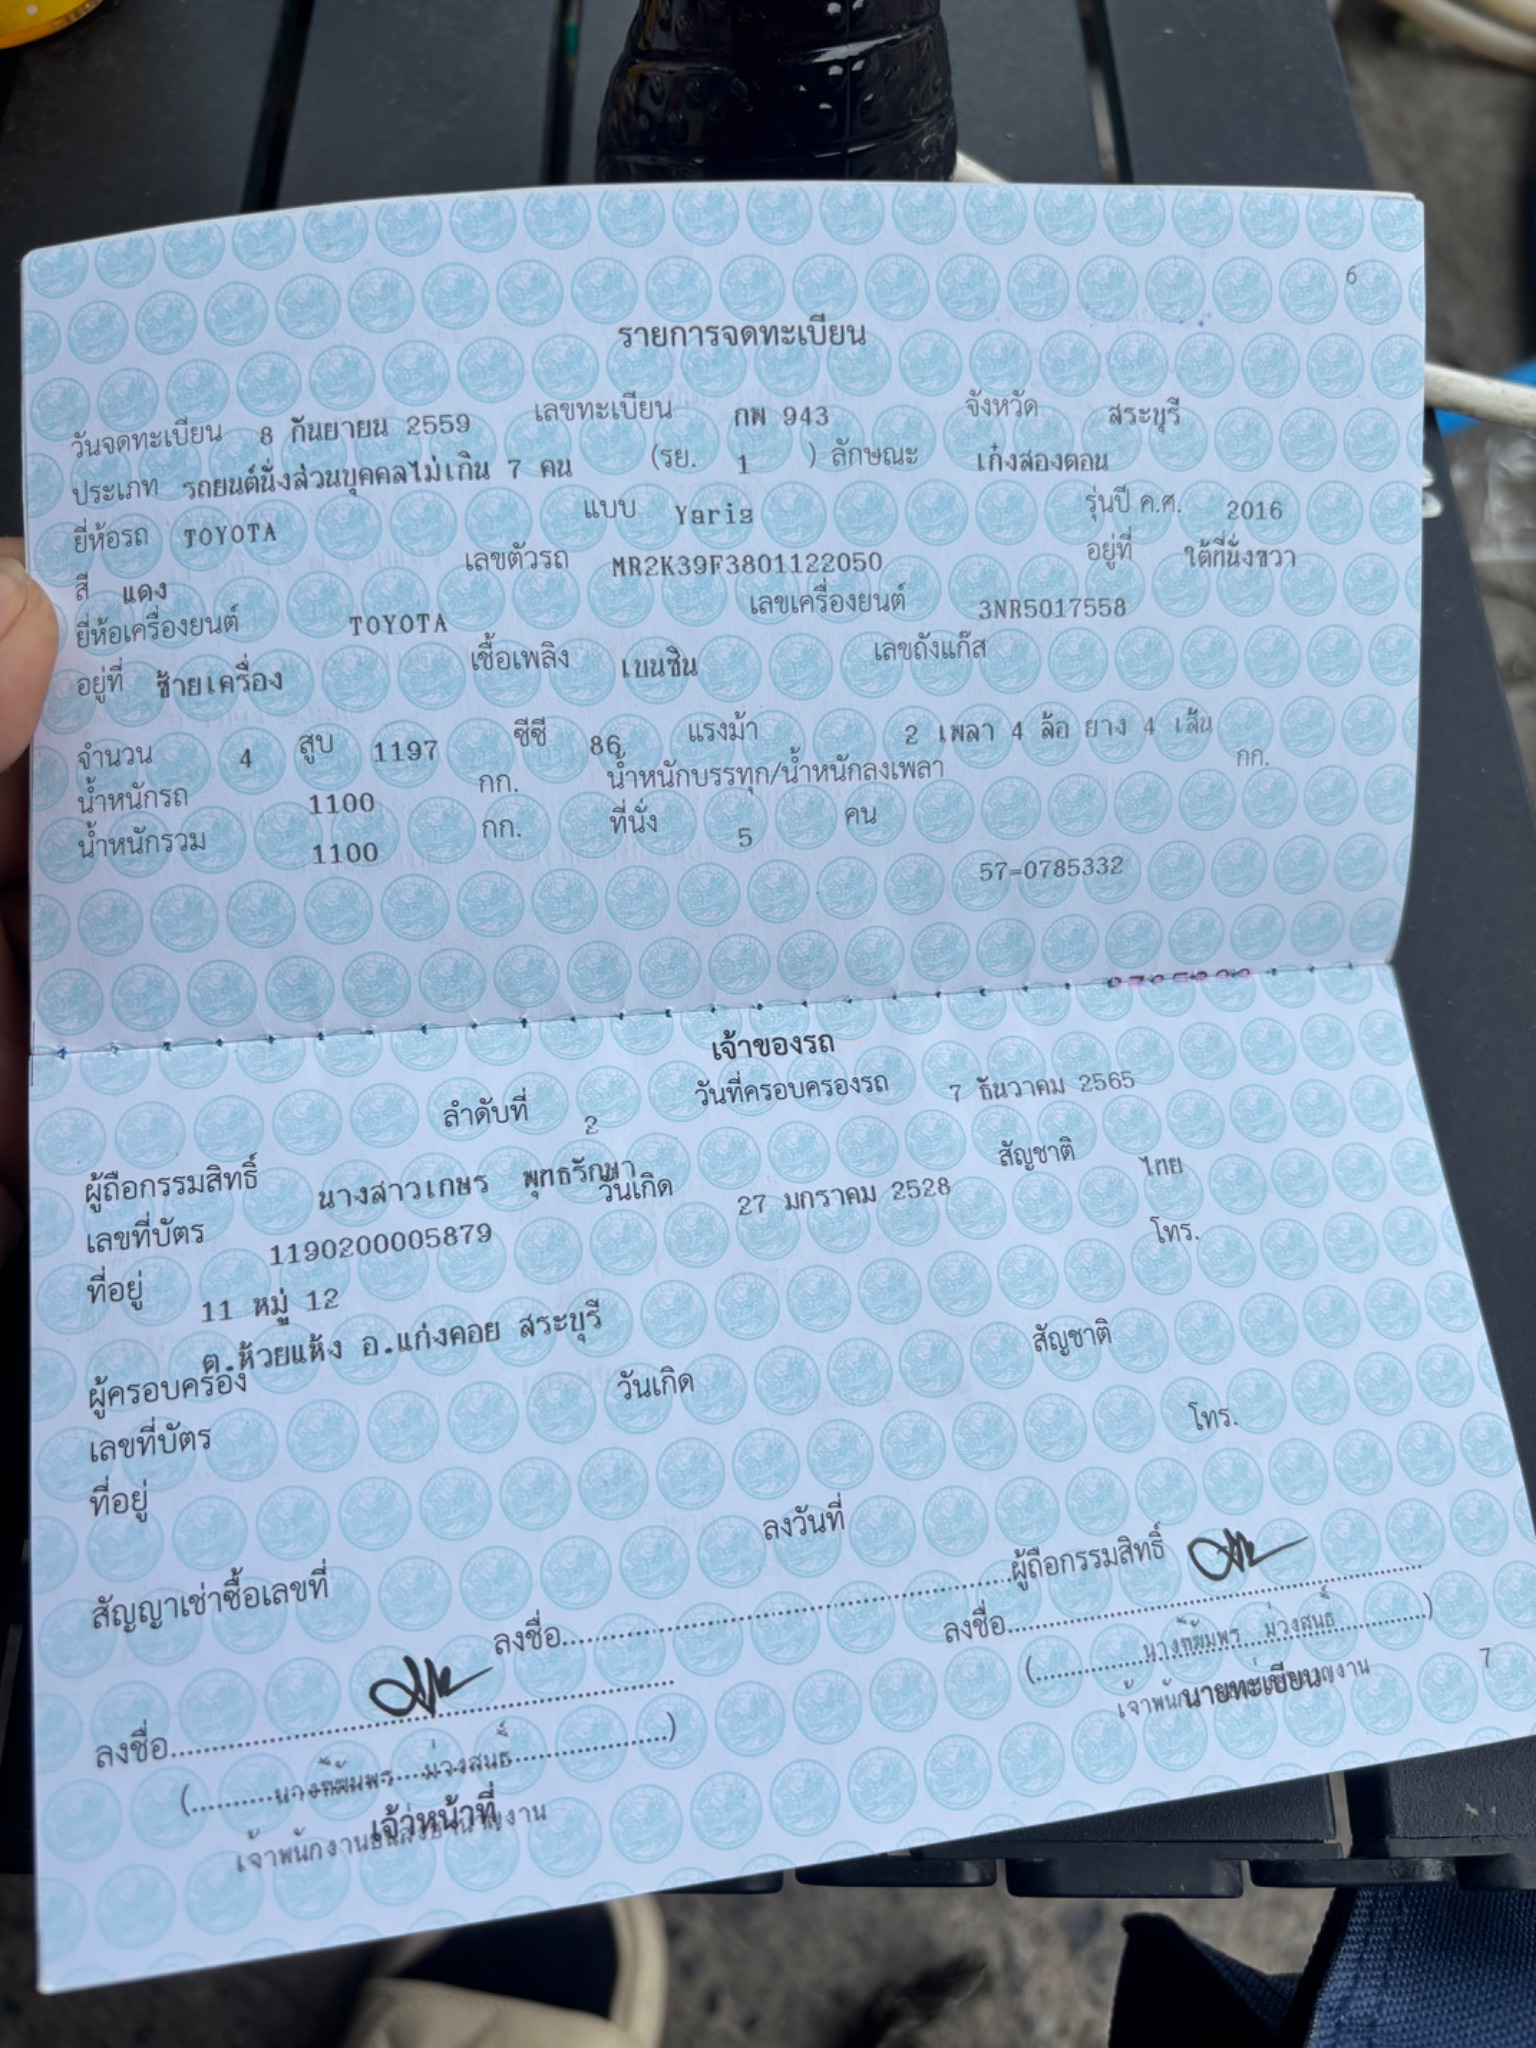 6
รายการจดทะเบียน
วันจดทะเบียน 8 กันยายน 2559 เลขทะเบียน กพ 943 จังหวัด สระบุรี
ประเภท รถยนต์นั่งส่วนบุคคลไม่เกิน 7 คน (รย. 1 ) ลักษณะ เก๋งสองตอน
ยี่ห้อรถ TOYOTA แบบ Yaris รุ่นปี ค.ศ. 2016
สี แดง เลขตัวรถ MR2K39F3801122050 อยู่ที่ ใต้ที่นั่งขวา
ยี่ห้อเครื่องยนต์ TOYOTA เลขเครื่องยนต์ 3NR5017558
อยู่ที่ ซ้ายเครื่อง เชื้อเพลิง เบนซิน เลขถังแก๊ส
จำนวน 4 สูบ 1197 ซีซี 86 แรงม้า 2 เพลา 4 ล้อ ยาง 4 เส้น
น้ำหนักรถ 1100 กก. น้ำหนักบรรทุก/น้ำหนักลงเพลา กก.
น้ำหนักรวม 1100 กก. ที่นั่ง 5 คน
57=0785332
เจ้าของรถ
ลำดับที่ 2 วันที่ครอบครองรถ 7 ธันวาคม 2565
ผู้ถือกรรมสิทธิ์ นางสาวเกษร พุทธรักษา วันเกิด 27 มกราคม 2528 สัญชาติ ไทย
เลขที่บัตร 1190200005879 โทร.
ที่อยู่ 11 หมู่ 12
ต.ห้วยแห้ง อ.แก่งคอย สระบุรี
ผู้ครอบครอง วันเกิด สัญชาติ
เลขที่บัตร โทร.
ที่อยู่
สัญญาเช่าซื้อเลขที่ ลงวันที่
ลงชื่อ ผู้ถือกรรมสิทธิ์
ลงชื่อ ลงชื่อ
(นาง ม่วงสนธิ์) (นาง ม่วงสนธิ์)
เจ้าหน้าที่ นายทะเบียน
7